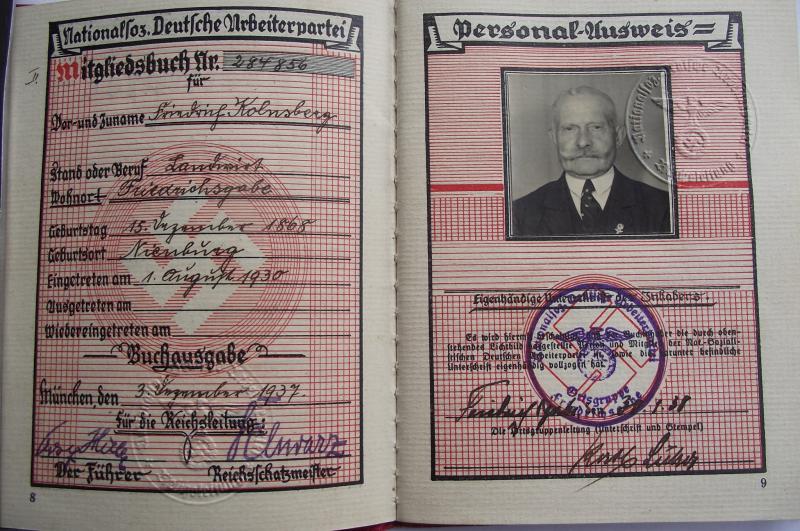 Nationalsoz. Deutsche Arbeiterpartei
Mitgliedsbuch Nr. 284856
für
Vor- und Zuname Friedrich Kolnsberg
Stand oder Beruf Landwirt
Wohnort Friedrichsgabe
Geburtstag 15. Dezember 1868
Geburtsort Nienburg
Eingetreten am 1. August 1930
Ausgetreten am
Wiedereingetreten am
Buchausgabe
München, den 3. Dezember 1937
Für die Reichsleitung:
Schwarz
Der Führer Reichsschatzmeister
8
Personal-Ausweis
Eigenhändige Unterschrift des Inhabers.
Es wird hiermit bescheinigt, daß der Buchinhaber die durch oben-
stehendes Lichtbild dargestellte Person und Mitglied der Nat.-Soziali-
stischen Deutschen Arbeiterpartei ist, sowie die darunter befindliche
Unterschrift eigenhändig vollzogen hat.
Ortsgruppe
den 38
Die Ortsgruppenleitung (Unterschrift und Stempel)
9